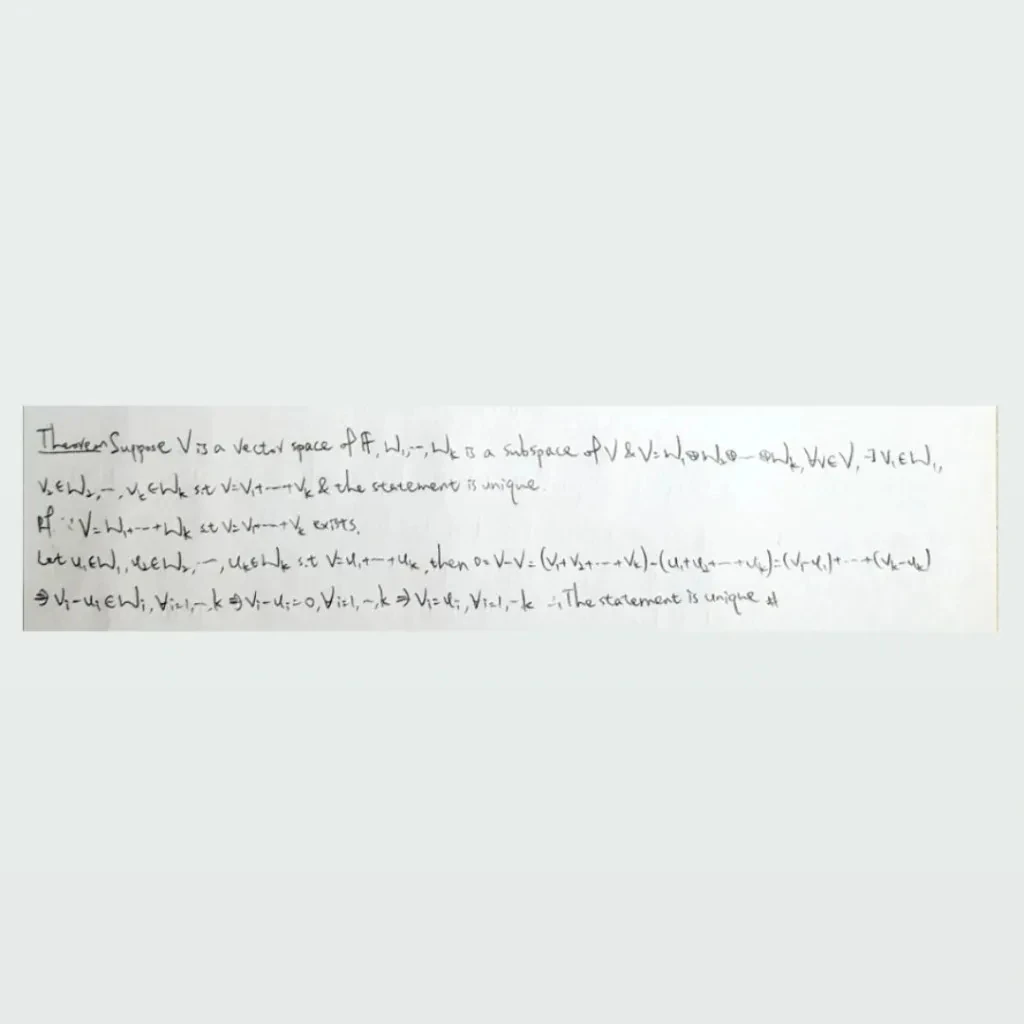 Theorem Suppose V is a vector space of F, W₁,…,Wₖ is a subspace of V & V=W₁⊕W₂⊕…⊕Wₖ, ∀v∈V, ∃v₁∈W₁,
v₂∈W₂,…,vₖ∈Wₖ s.t V=V₁+…+Vₖ & the statement is unique.
Pf ∵V=W₁+…+Wₖ s.t V=V₁+…+Vₖ exists.
Let u₁∈W₁, u₂∈W₂,…, uₖ∈Wₖ s.t V=u₁+…+uₖ, then 0=V-V=(V₁+V₂+…+Vₖ)-(u₁+u₂+…+uₖ)=(V₁-u₁)+…+(Vₖ-uₖ)
⇒Vᵢ-uᵢ∈Wᵢ,∀i=1,…,k⇒Vᵢ-uᵢ=0,∀i=1,…,k⇒Vᵢ=uᵢ,∀i=1,…k ∴The statement is unique #